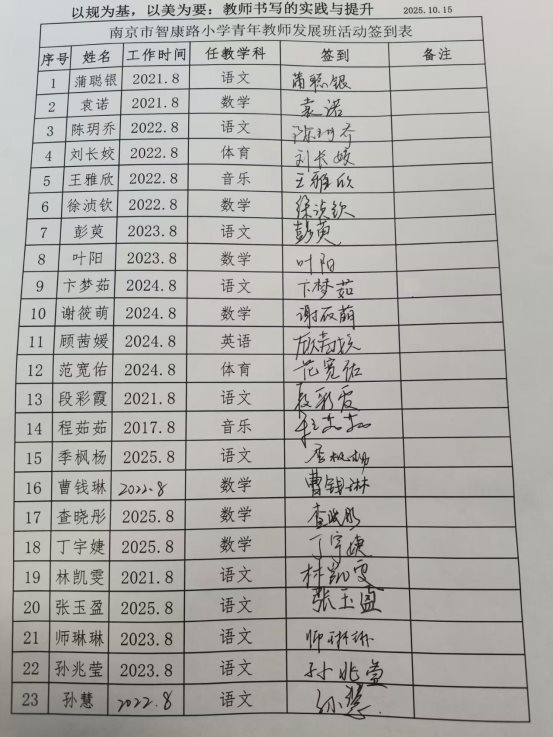 以规为基，以美为要：教师书写的实践与提升 2025.10.15
南京市智康路小学青年教师发展班活动签到表
序号 姓名 工作时间 任教学科 签到 备注
1 蒲聪银 2021.8 语文 蒲聪银
2 袁诺 2021.8 数学 袁诺
3 陈玥乔 2022.8 语文 陈玥乔
4 刘长姣 2022.8 体育 刘长姣
5 王雅欣 2022.8 音乐 王雅欣
6 徐浈钦 2022.8 数学 徐浈钦
7 彭萸 2023.8 语文 彭萸
8 叶阳 2023.8 数学 叶阳
9 卞梦茹 2024.8 语文 卞梦茹
10 谢筱萌 2024.8 数学 谢筱萌
11 顾茜媛 2024.8 英语 顾茜媛
12 范宽佑 2024.8 体育 范宽佑
13 段彩霞 2021.8 语文 段彩霞
14 程茹茹 2017.8 音乐 程茹茹
15 季枫杨 2025.8 语文 季枫杨
16 曹钱琳 2022.8 数学 曹钱琳
17 查晓彤 2025.8 数学 查晓彤
18 丁宇婕 2025.8 数学 丁宇婕
19 林凯雯 2021.8 语文 林凯雯
20 张玉盈 2025.8 语文 张玉盈
21 师琳琳 2023.8 语文 师琳琳
22 孙兆莹 2023.8 语文 孙兆莹
23 孙慧 2022.8 语文 孙慧